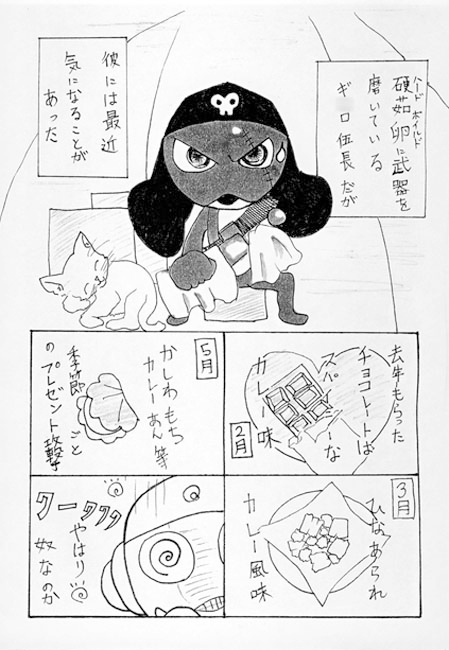 ハード ボイルド
硬茹卵に武器を
磨いている
ギロロ伍長だが
彼には最近
気になることが
あった
去年もらった
チョコレートは
スパイシーな
カレー味
2月
3月
ひなあられ
カレー風味
5月
かしわもち
カレーあん等
季節ごと
のプレゼント攻撃
クークククク
やはり
奴なのか